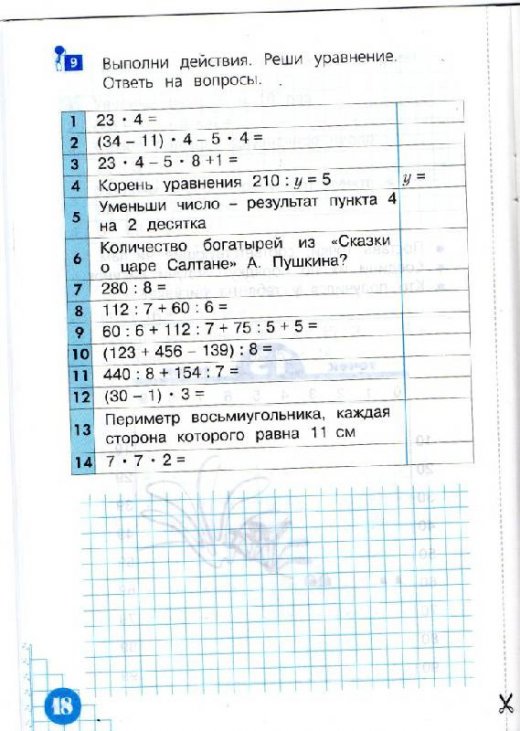 9 Выполни действия. Реши уравнение.
Ответь на вопросы.
1 23 · 4 =
2 (34 – 11) · 4 – 5 · 4 =
3 23 · 4 – 5 · 8 +1 =
4 Корень уравнения 210 : y = 5 y =
5 Уменьши число – результат пункта 4
на 2 десятка
6 Количество богатырей из «Сказки
о царе Салтане» А. Пушкина?
7 280 : 8 =
8 112 : 7 + 60 : 6 =
9 60 : 6 + 112 : 7 + 75 : 5 + 5 =
10 (123 + 456 – 139) : 8 =
11 440 : 8 + 154 : 7 =
12 (30 – 1) · 3 =
13 Периметр восьмиугольника, каждая
сторона которого равна 11 см
14 7 · 7 · 2 =
18